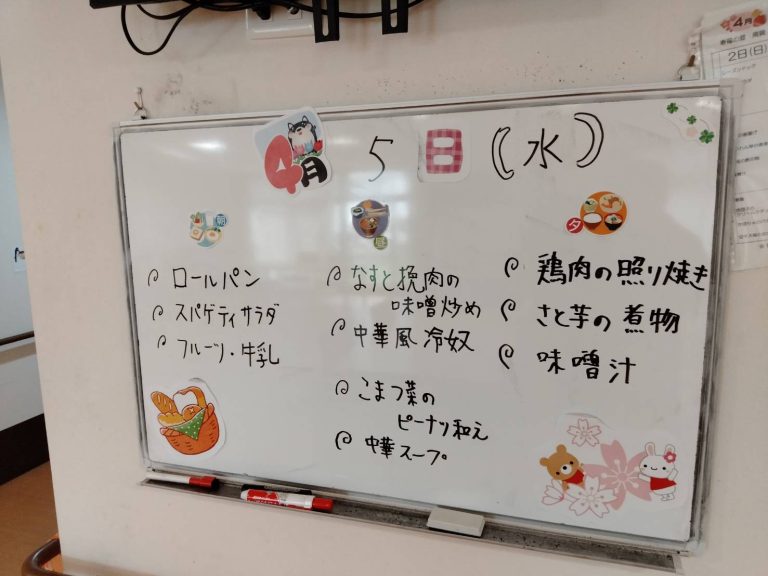 4月 5 日 (水)
朝
ロールパン
スパゲティサラダ
フルーツ・牛乳
昼
なすと挽肉の
味噌炒め
中華風冷奴
こまつ菜の
ピーナツ和え
中華スープ
夕
鶏肉の照り焼き
さと芋の煮物
味噌汁
4月
2日(日)